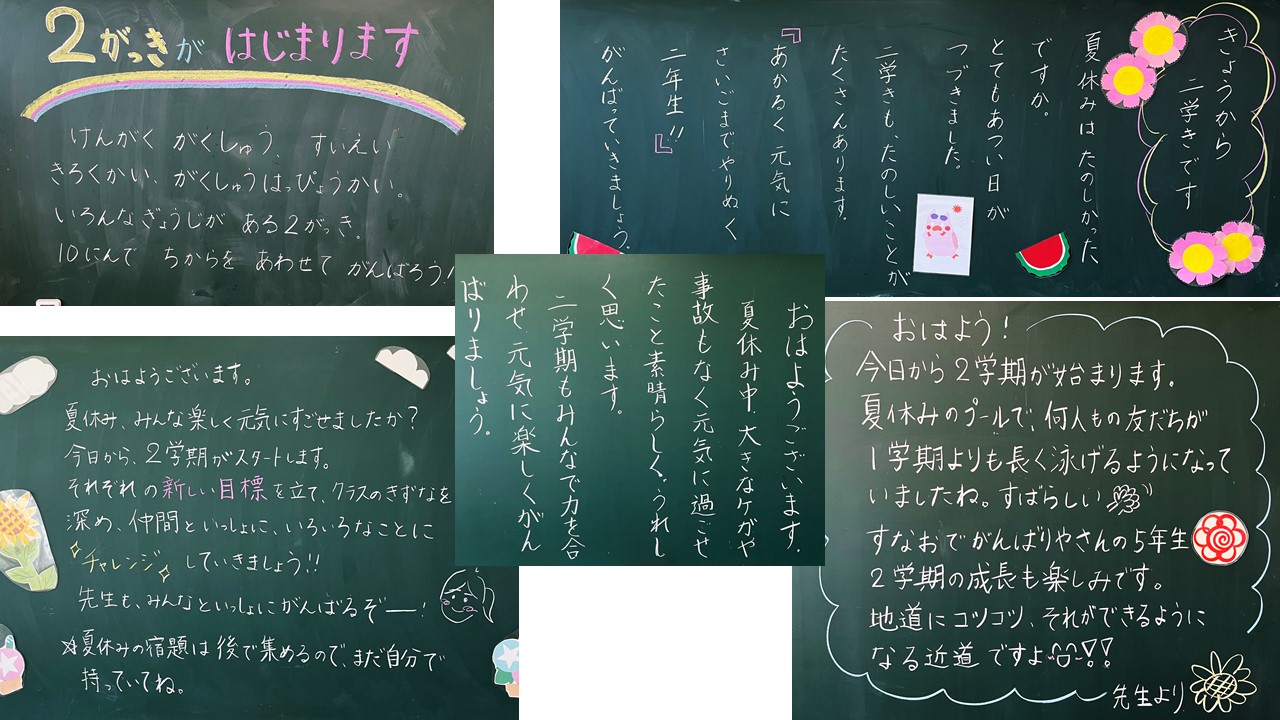 2がっきが はじまります
けんがく がくしゅう、すいえい
きろくかい、がくしゅうはっぴょうかい。
いろんなぎょうじが ある2がっき。
10にんで ちからを あわせて がんばろう!
きょうから
二学きです
夏休みは たのしかった
ですか。
とてもあつい日が
つづきました。
二学きも、たのしいことが
たくさんあります。
『あかるく 元気に
さいごまでやりぬく
二年生!!』
がんばっていきましょう。
おはようございます。
夏休み、みんな楽しく元気にすごせましたか?
今日から、2学期がスタートします。
それぞれの新しい目標を立て、クラスのきずなを
深め、仲間といっしょに、いろいろなことに
チャレンジ していきましょう!!
先生も、みんなといっしょにがんばるぞー!
☆夏休みの宿題は後で集めるので、まだ自分で
持っていてね。
おはようございます。
夏休み中、大きなケガや
事故もなく元気に過ごせ
たこと素晴らしく、うれし
く思います。
二学期もみんなで力を合
わせ、元気に楽しくがん
ばりましょう。
おはよう!
今日から2学期が始まります。
夏休みのプールで、何人もの友だちが
1学期よりも長く泳げるようになって
いましたね。すばらしい
すなおでがんばりやさんの5年生
2学期の成長も楽しみです。
地道にコツコツ、それができるように
なる近道ですよ!!
先生より